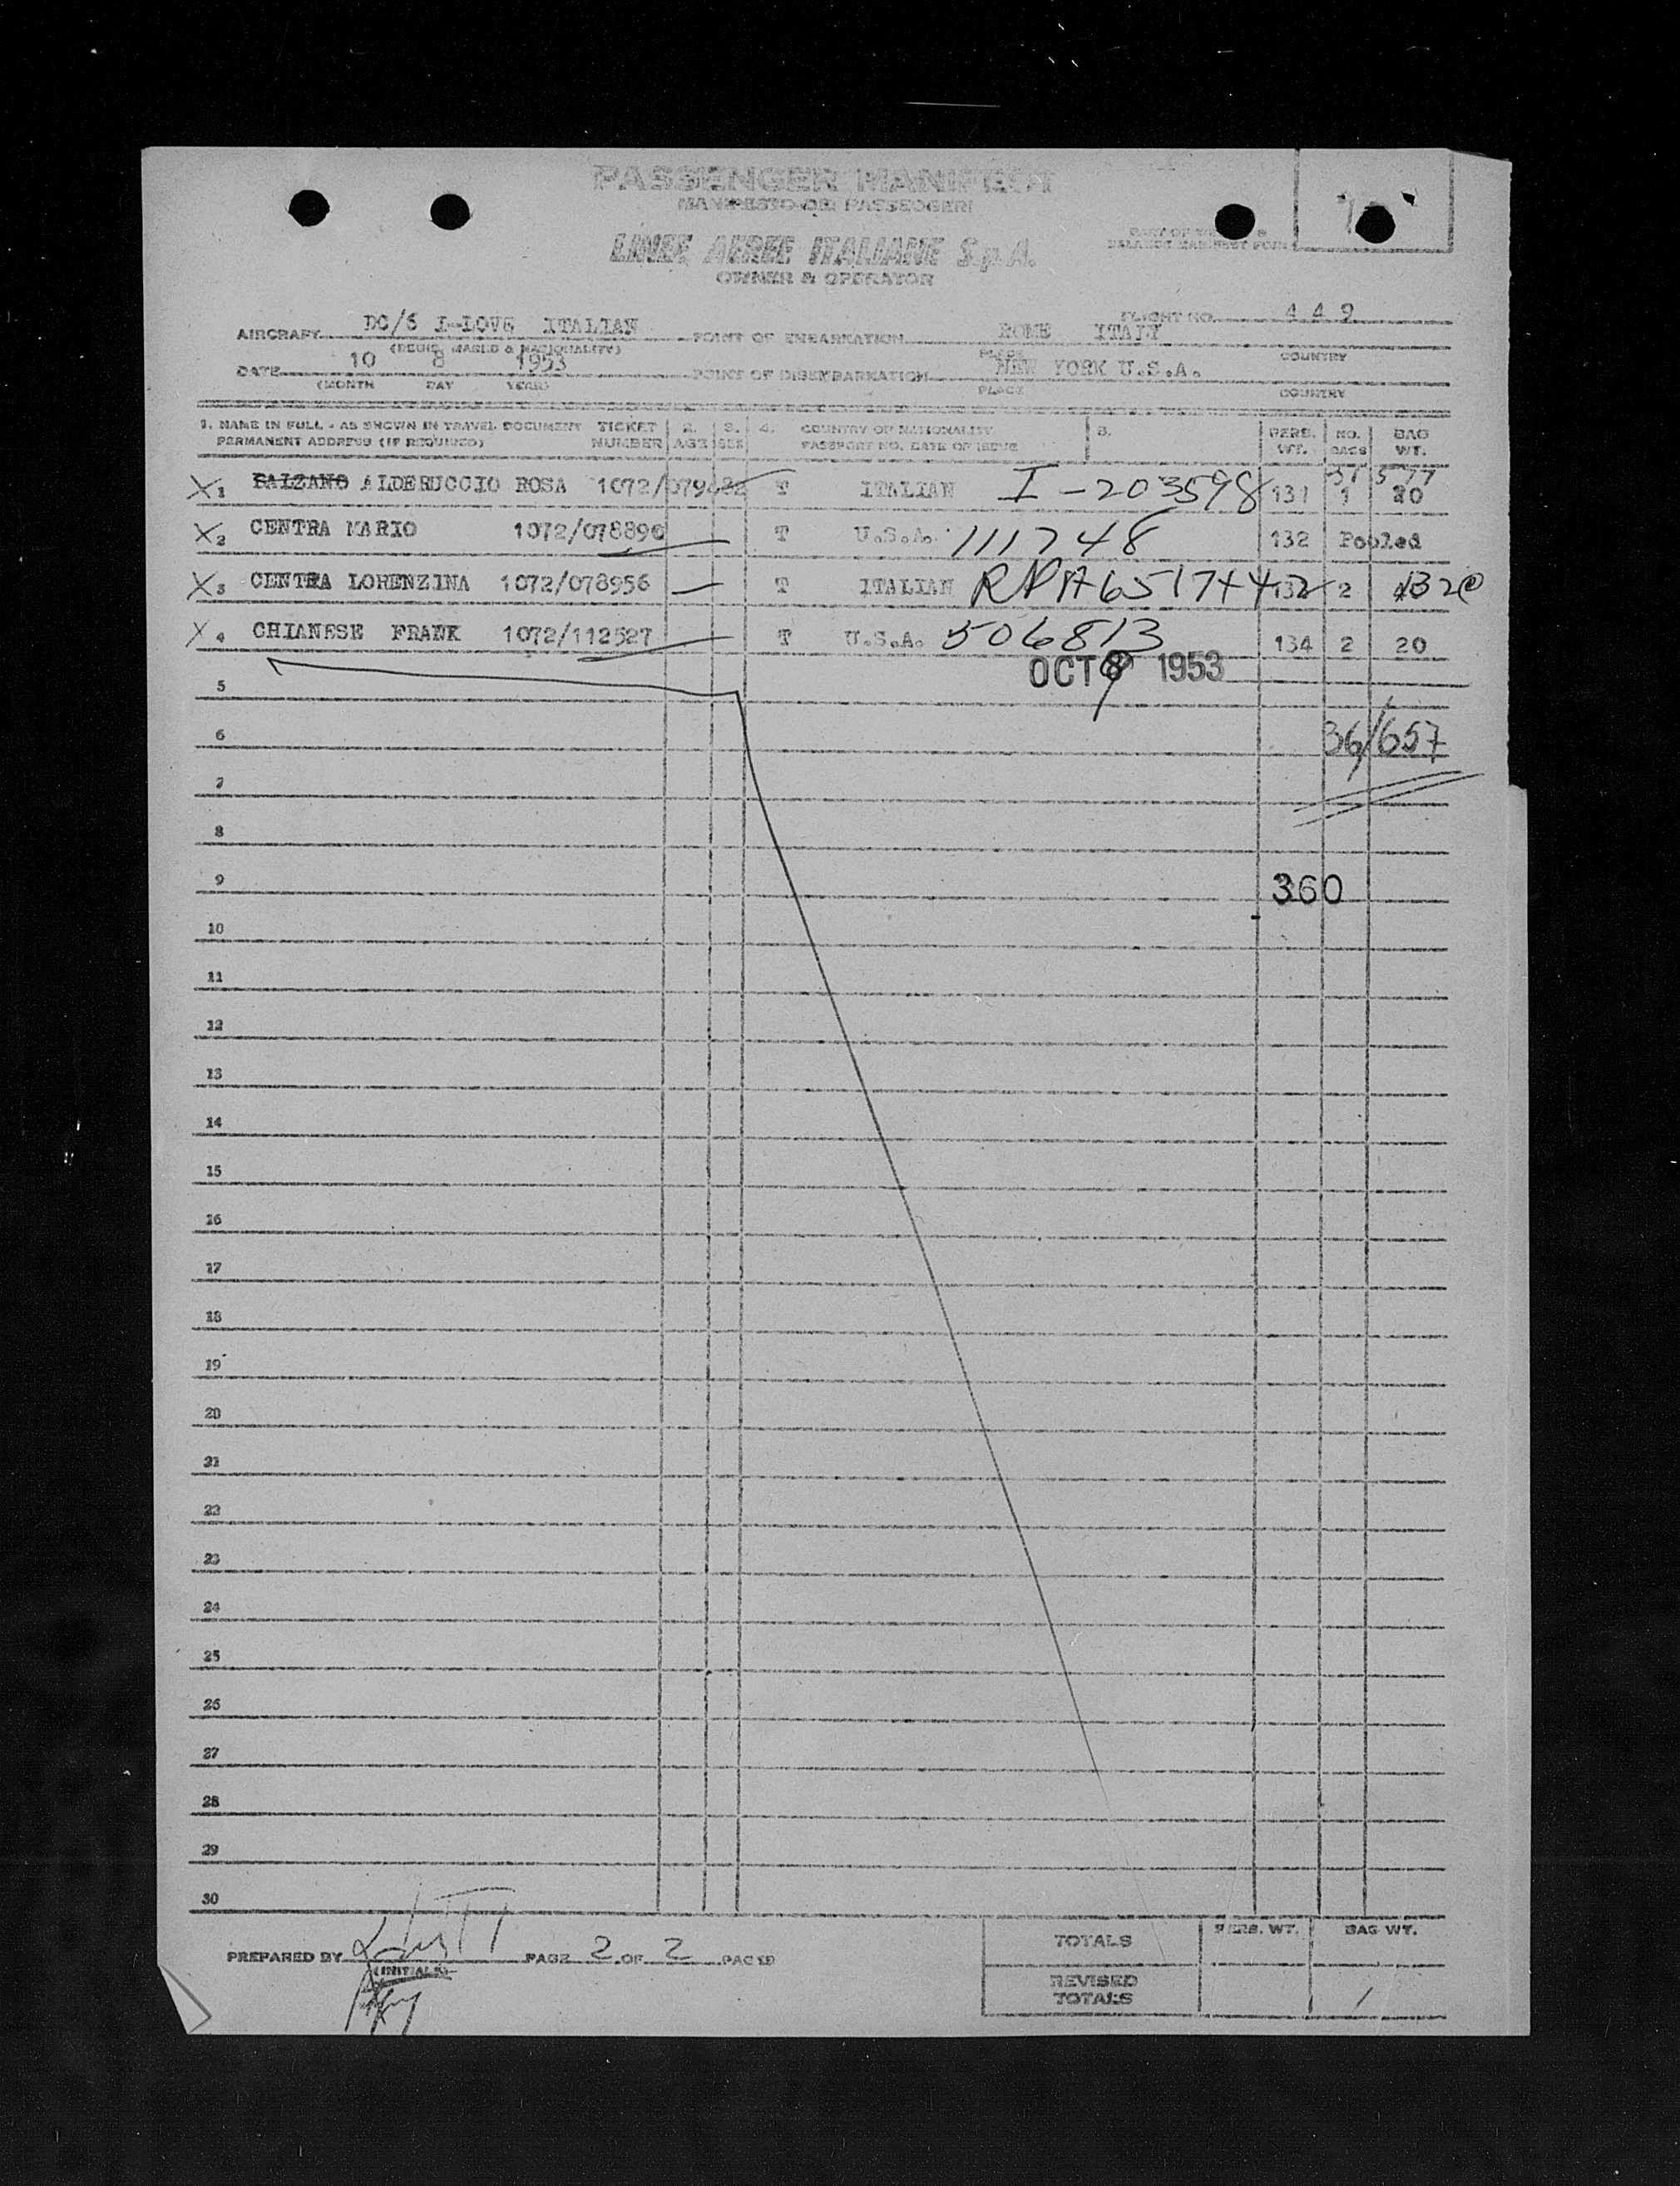 PASSENGER MANIFEST
MANIFESTO DEI PASSEGGERI
LINEE AEREE ITALIANE S.p.A.
OWNER & OPERATOR
PART OF WEIGHT &
BALANCE MANIFEST FORM
FLIGHT NO. 449
AIRCRAFT DC/6 I-LOVE ITALIAN POINT OF EMBARKATION ROME ITALY
(REGIS. MARKS & NATIONALITY) PLACE COUNTRY
DATE 10 8 1953 POINT OF DISEMBARKATION NEW YORK U.S.A.
(MONTH DAY YEAR) PLACE COUNTRY
1. NAME IN FULL - AS SHOWN IN TRAVEL DOCUMENT TICKET 2. 3. 4. COUNTRY OF NATIONALITY 5. PERS. NO. BAG
PERMANENT ADDRESS (IF REQUIRED) NUMBER AGE SEX PASSPORT NO. DATE OF ISSUE WT. BAGS WT.
31 577
X 1 BALZANO ALDERUCCIO ROSA 1072/079482 T ITALIAN I-203598 131 1 20
X 2 CENTRA MARIO 1072/078890 T U.S.A. 111748 132 Pooled
X 3 CENTRA LORENZINA 1072/078956 T ITALIAN 2
X 4 CHIANESE FRANK 1072/112527 T U.S.A. 506813 134 2 20
OCT 8 1953
5
6 36/657
7
8
9 360
10
11
12
13
14
15
16
17
18
19
20
21
22
23
24
25
26
27
28
29
30
PERS. WT. BAG WT.
TOTALS
PREPARED BY PAGE 2 OF 2 PAGES
(INITIALS)
REVISED
TOTALS